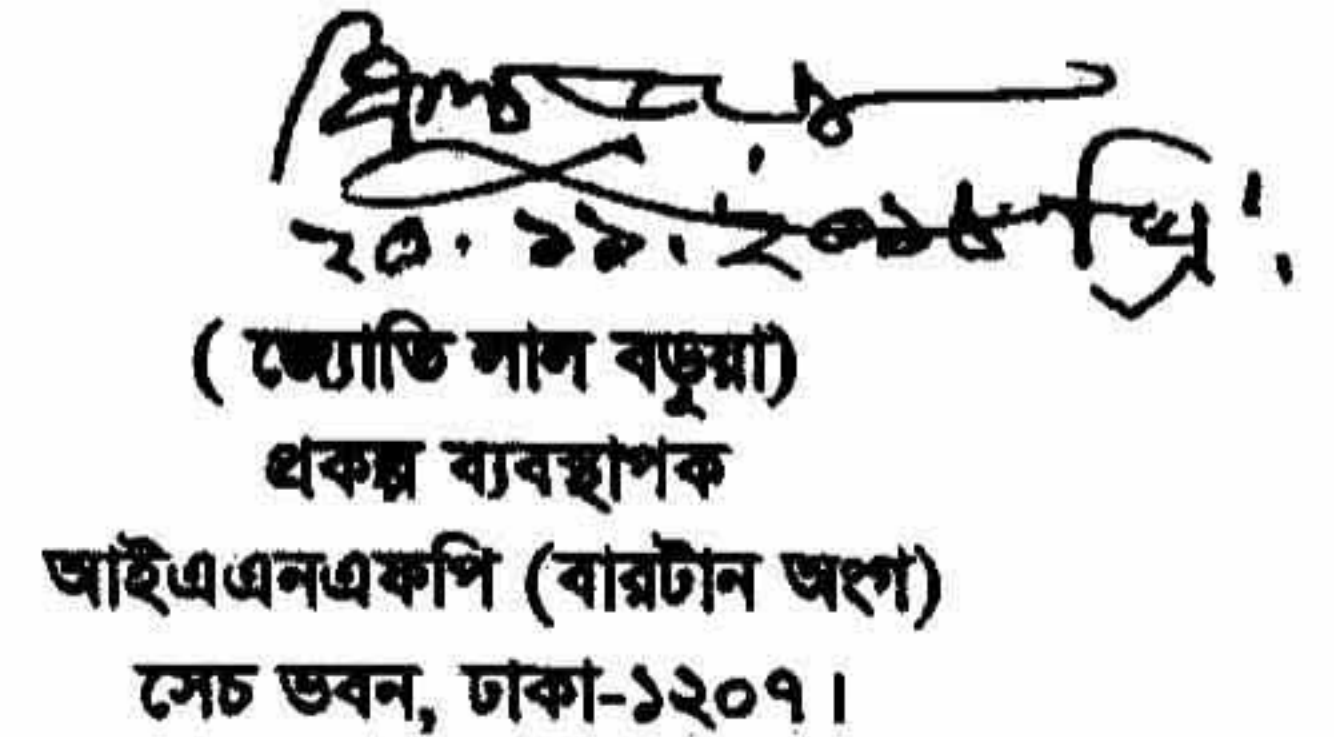 ( জ্যোতি লাল বড়ুয়া)
প্রকল্প ব্যবস্থাপক
আইএএনএফপি (বারটান অংগ)
সেচ ভবন, ঢাকা-১২০৭।